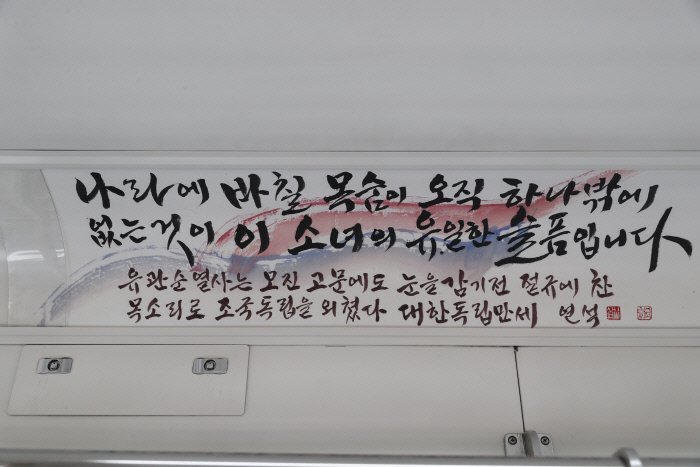 나라에 바칠 목숨이 오직 하나밖에
없는것이 이 소녀의 유일한 슬픔입니다
유관순열사는 모진 고문에도 눈을감기전 절규에 찬
목소리로 조국독립을 외쳤다 대한독립만세 연석